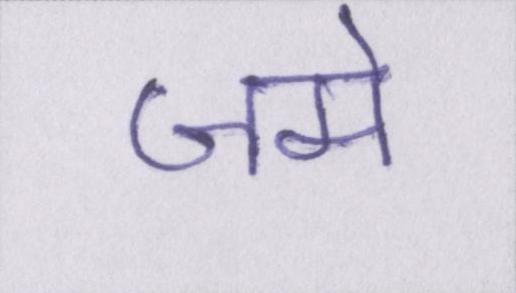 जमे